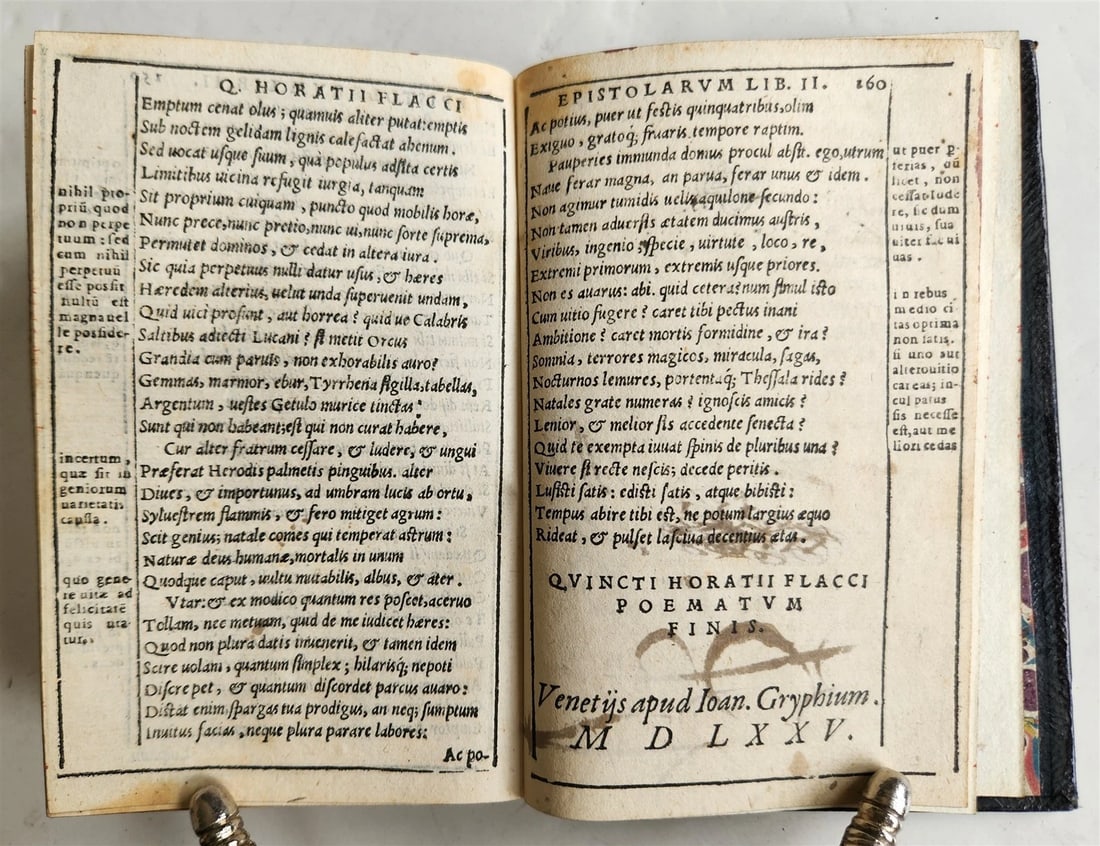 Q. HORATII FLACCI
Emptum cenat olus; quamuis aliter putat: emptis
Sub noctem gelidam lignis calefactat ahenum.
Sed uocat usque suum, quà populus adsita certis
Limitibus uicina refugit iurgia, tanquam
Sit proprium cuiquam, puncto quod mobilis horæ,
Nunc prece, nunc pretio, nunc ui, nunc sorte suprema,
Permutet dominos, & cedat in altera iura.
Sic quia perpetuus nulli datur usus, & hæres
Hæredem alterius, uelut unda superuenit undam,
Quid uici prosunt, aut horrea? quid ue Calabris
Saltibus adiecti Lucani? si metit Orcus
Grandia cum paruis, non exhorabilis auro?
Gemmas, marmor, ebur, Tyrrhena sigilla, tabellas,
Argentum, uestes Getulo murice tinctas;
Sunt qui non habeant; est qui non curat habere,
Cur alter fratrum cessare, & ludere, & ungui
Præferat Herodis palmetis pinguibus. alter
Diues, & importunus, ad umbram lucis ab ortu,
Syluestrem flammis, & fero mitiget agrum:
Scit genius; natale comes qui temperat astrum:
Naturæ deus humanæ, mortalis in unum
Quodque caput, uultu mutabilis, albus, & ater.
Vtar: & ex modico quantum res poscet, aceruo
Tollam, nec metuam, quid de me iudicet hæres:
Quod non plura datis inuenerit, & tamen idem
Scire uolam, quantum simplex; hilarisq; nepoti
Discrepet, & quantum discordet parcus auaro:
Distat enim, spargas tua prodigus, an neq; sumptum
Inuitus facias, neque plura parare labores:
Ac po-
nihil pro-
priũ quod
non perpe
tuum: sed
cum nihil
perpetuũ
esse possit
nultũ est
magna uel
le posside-
re.
incertum,
quæ sit in
geniorum
uarietatis
caussa.
quo gene-
re uitæ ad
felicitatẽ
quis uta-
tur.
EPISTOLARVM LIB. II. 160
Ac potius, puer ut festis quinquatribus, olim
Exiguo, gratoq; fruaris tempore raptim.
Pauperies immunda domus procul absit. ego, utrum
Naue ferar magna, an parua, ferar unus & idem.
Non agimur tumidis uelis aquilone secundo:
Non tamen aduersis ætatem ducimus austris,
Viribus, ingenio, specie, uirtute, loco, re,
Extremi primorum, extremis usque priores.
Non es auarus: abi. quid cetera? num simul isto
Cum uitio fugere? caret tibi pectus inani
Ambitione? caret mortis formidine, & ira?
Somnia, terrores magicos, miracula, sagas,
Nocturnos lemures, portentaq; Thessala rides?
Natales grate numeras? ignoscis amicis?
Lenior, & melior sis accedente senecta?
Quid te exempta iuuat spinis de pluribus una?
Viuere si recte nescis; decede peritis.
Lusisti satis: edisti satis, atque bibisti:
Tempus abire tibi est, ne potum largius æquo
Rideat, & pulset lasciua decentius ætas.
QVINCTI HORATII FLACCI
POEMATVM
FINIS.
Venetijs apud Ioan. Gryphium.
M D LXXV.
ut puer
ferias,
licet, non
cessat lude
re, sic dum
uiuis, sua
uiter
uas.
in rebus
medio cri
tas optima
non satis.
si uno aut
altero uitio
careas; in-
cul patus
sis necesse
est, aut me
liori cedas